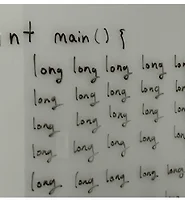 int main() {
long long long long lon
long long long long long
long long long long long
long long long long long
long long long long long